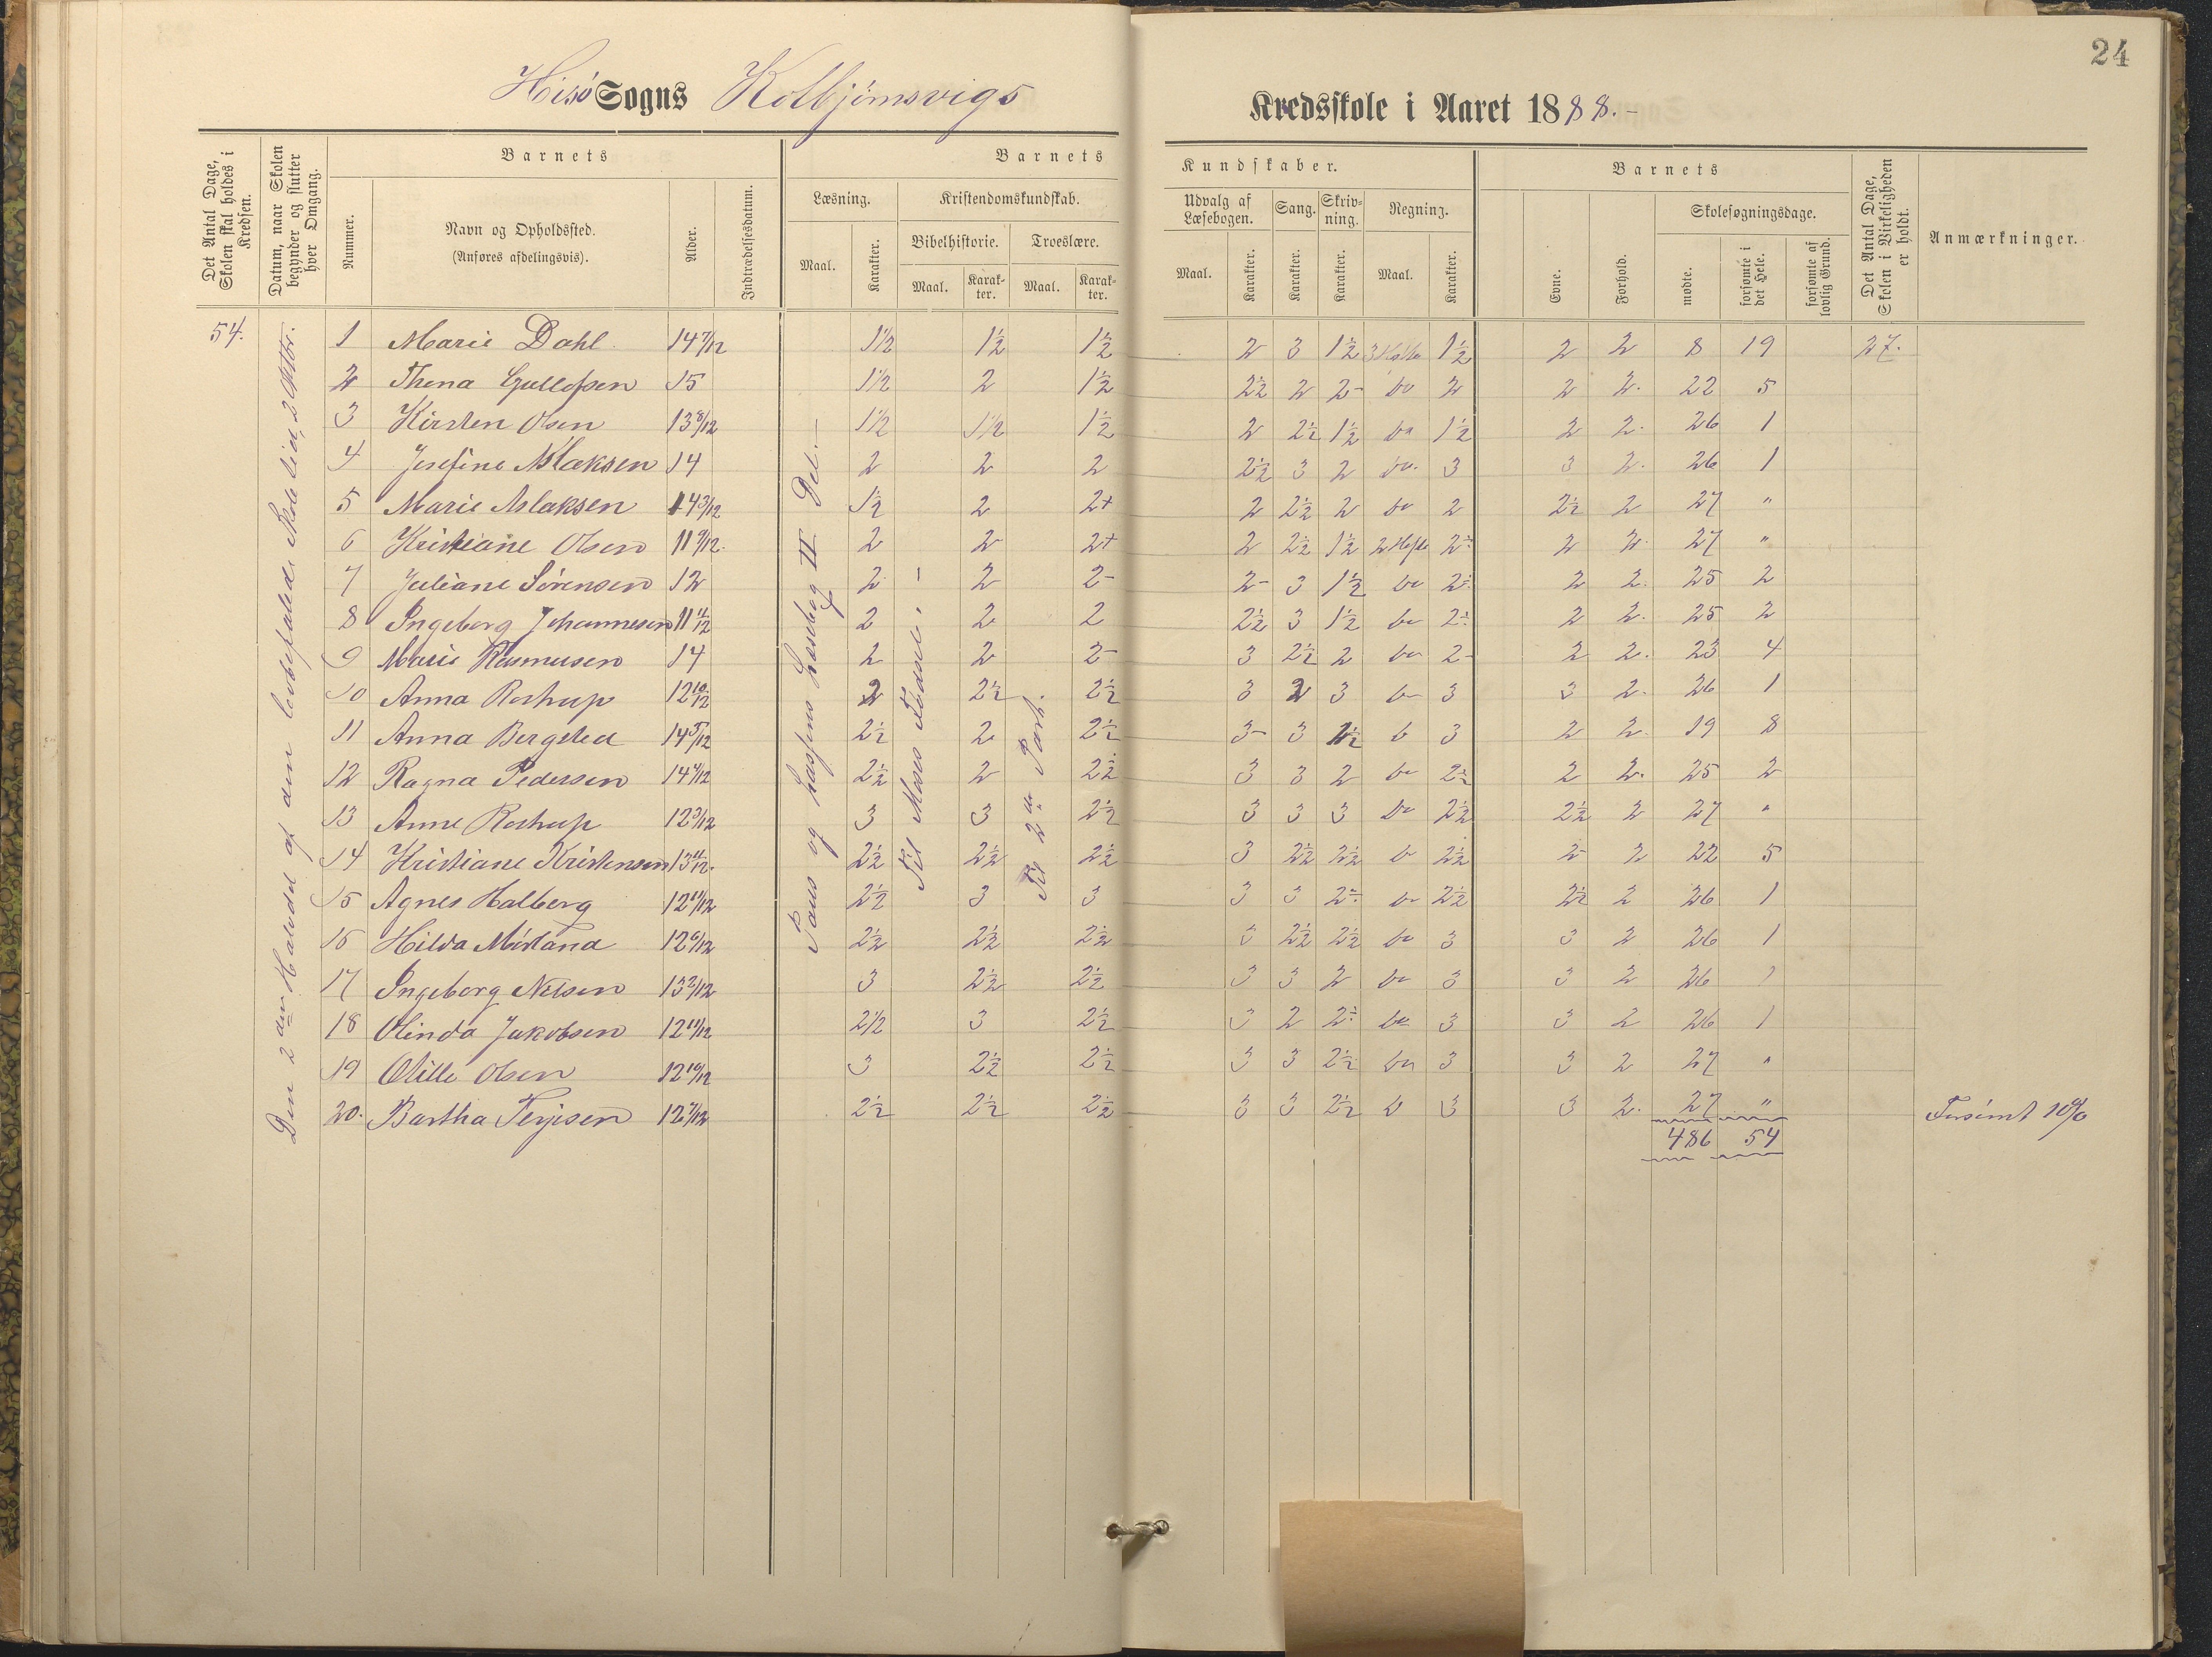 24
Hisö Sogns Kolbjörnsvigs Kredsskole i Aaret 1888.-
Det Antal Dage, Skolen skal holdes i Kredsen.
Datum, naar Skolen begynder og slutter hver Omgang.
Barnets
Nummer.
Navn og Opholdssted.
(Anføres afdelingsvis).
Alder.
Indtrædelsesdatum.
Barnets Kundskaber.
Læsning.
Maal.
Karakter.
Kristendomskundskab.
Bibelhistorie.
Maal.
Karakter.
Troeslære.
Maal.
Karakter.
Udvalg af Læsebogen.
Maal.
Karakter.
Sang.
Karakter.
Skrivning.
Karakter.
Regning.
Maal.
Karakter.
Barnets
Evne.
Forhold.
Skolesøgningsdage.
mødte.
forsømte i det Hele.
forsømte af lovlig Grund.
Det Antal Dage, Skolen i Virkeligheden er holdt.
Anmærkninger.
Den 2den Halvdel af den lovbefalede Skoletid,
Paus og Lassens Læsebog II Del.-
Til Moses Fødsel.
Til 2den Part.
54. 1 Marie Dahl 14 7/12 1 1/2 1 1/2 1 1/2 2 3 1 1/2 3 Hefte 1 1/2 2 2 8 19 27.
2 Thena Gullefsen 15 1 1/2 2 1 1/2 2 1/2 2 2- do 2 2 2. 22 5
3 Kirsten Olsen 13 8/12 1 1/2 1 1/2 1 1/2 2 2 1/2 1 1/2 do 1 1/2 2 2. 26 1
4 Josefine Aslaksen 14 2 2 2 2 1/2 3 2 do. 3 3 2. 26 1
5 Marie Aslaksen 14 3/12 1 1/2 2 2+ 2 2 1/2 2 do 2 2 1/2 2 27 "
6 Kristiane Olsen 11 9/12. 2 2 2+ 2 2 1/2 1 1/2 2 Hefte 2 2 2. 27 "
7 Juliane Sörensen 12 2 2 2- 2- 3 1 1/2 do 2 2 2. 25 2
8 Ingeborg Johannesen 11 11/12 2 2 2 2 1/2 3 1 1/2 do 2 2 2. 25 2
9 Marie Rasmusen 14 2 2 2- 3 2 1/2 2 do 2- 2 2. 23 4
10 Anna Rostrup 12 10/12 2 2 1/2 2 1/2 3 2 3 do 3 3 2. 26 1
11 Anna Bergsted 14 5/12 2 1/2 2 2 1/2 3- 3 do 3 2 2. 19 8
12 Ragna Pedersen 14 4/12 2 1/2 2 2 1/2 3 3 2 do 2 1/2 2 2. 25 2
13 Anne Rostrup 12 3/12 3 3 2 1/2 3 3 3 do 2 1/2 2 1/2 2 27 "
14 Kristiane Kristensen 13 11/12. 2 1/2 2 1/2 2 1/2 3 2 1/2 2 1/2 do 2 1/2 2- 2 22 5
15 Agnes Halberg 12 11/12 2 1/2 3 3 3 3 2 do 2 1/2 2 1/2 2 26 1
16 Hilda Mörland 12 6/12 2 1/2 2 1/2 2 1/2 3 2 1/2 2 1/2 do 3 3 2 26 1
17 Ingeborg Nilsen 13 2/12 3 2 1/2 2 1/2 3 3 2 do 3 3 2 26 1
18 Olinda Jakobsen 12 11/12 2 1/2 3 2 1/2 3 2 2 do 3 3 2 26 1
19 Olille Olsen 12 10/12 3 2 1/2 2 1/2 3 3 2 1/2 do 3 3 2 27 "
20. Bartha Terjesen 12 7/12 2 1/2 2 1/2 2 1/2 3 3 2 1/2 do 3 3 2. 27 " Forsömt 10%
486 54